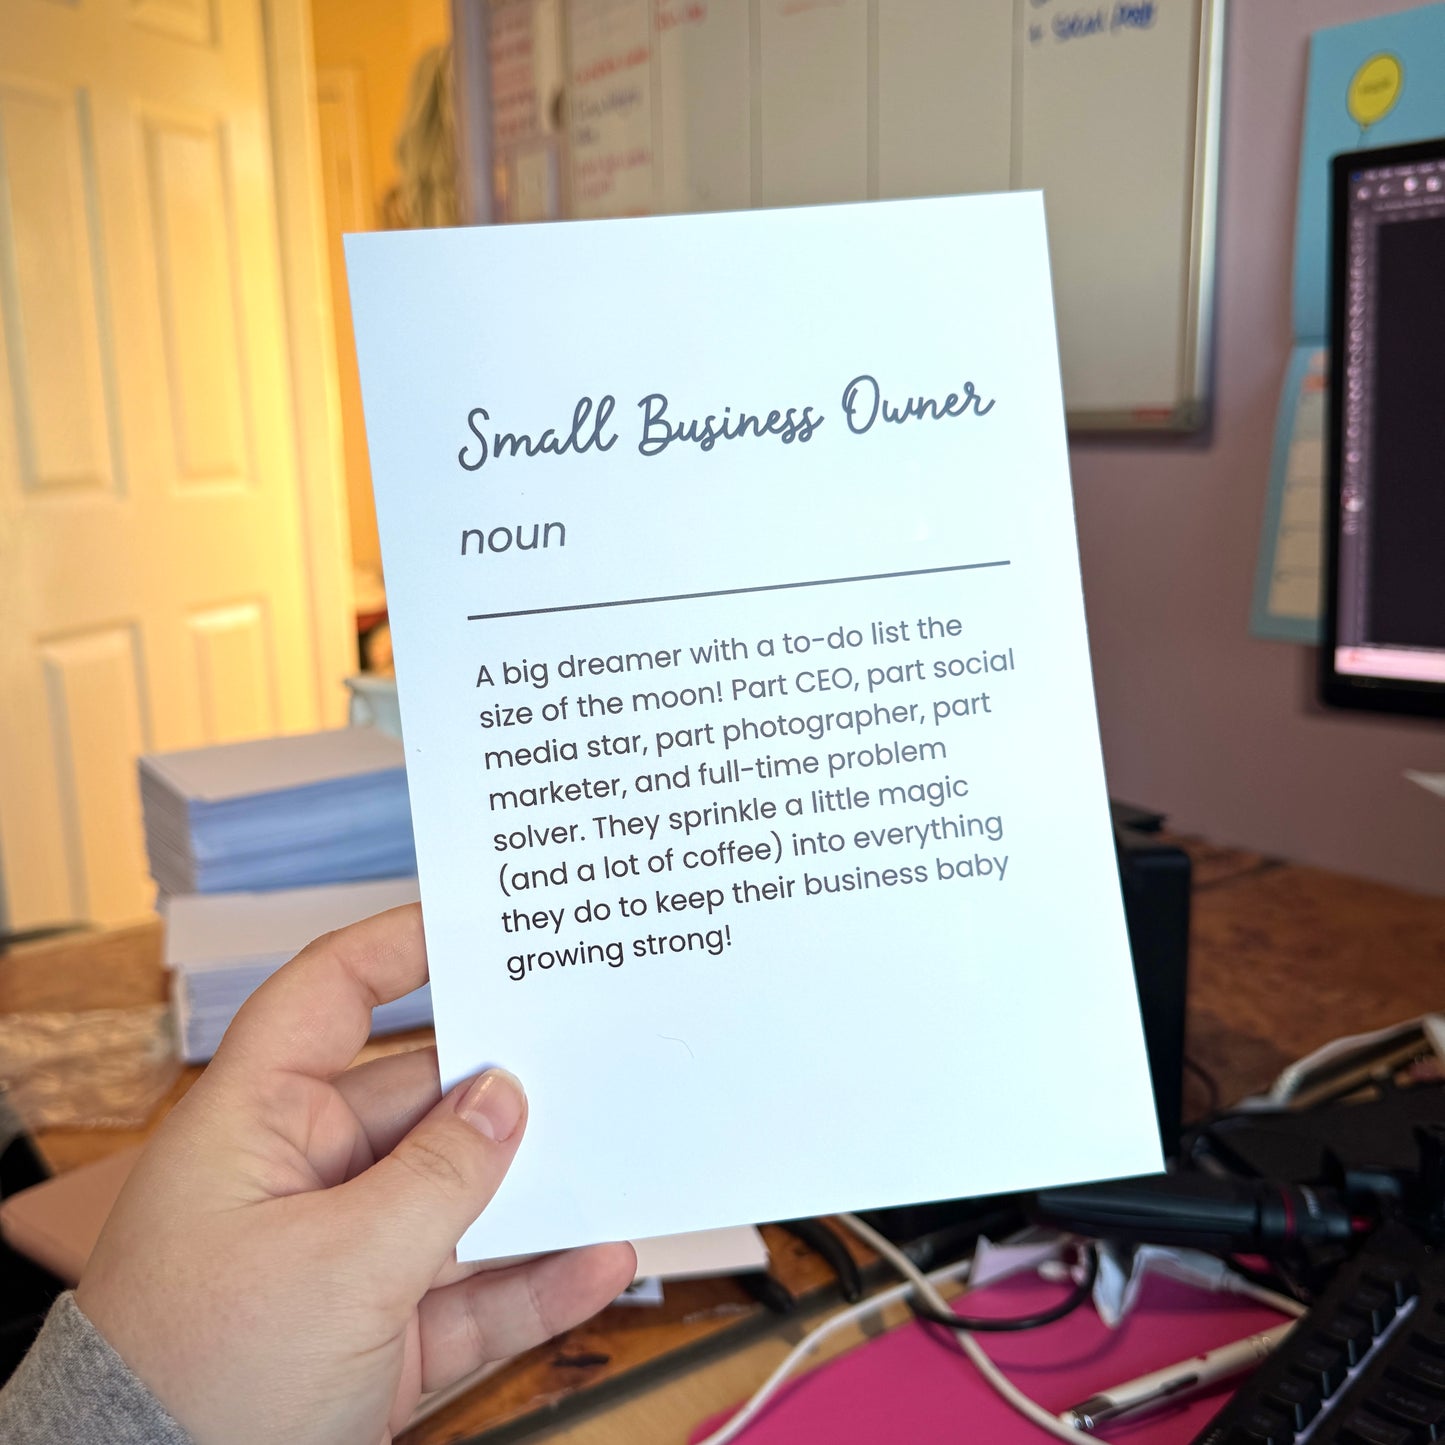 Small Business Owner
noun
A big dreamer with a to-do list the
size of the moon! Part CEO, part social
media star, part photographer, part
marketer, and full-time problem
solver. They sprinkle a little magic
(and a lot of coffee) into everything
they do to keep their business baby
growing strong!